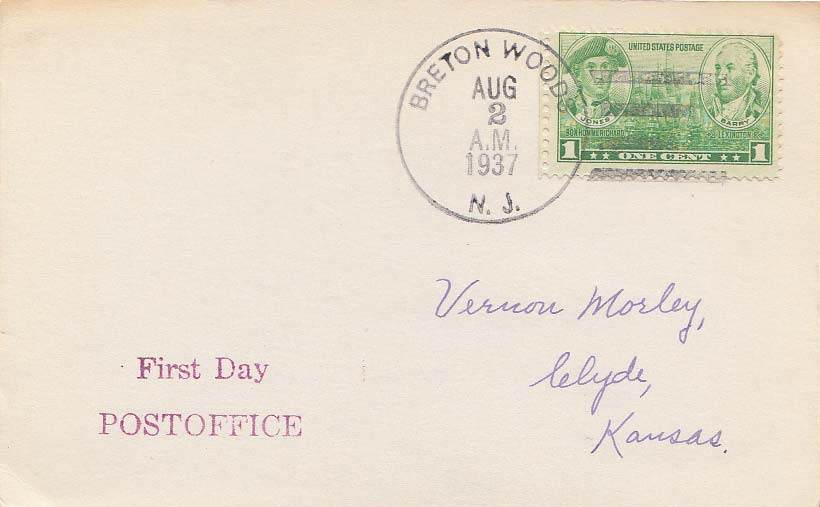 BRETON WOODS
AUG
2
A.M.
1937
N. J.
UNITED STATES POSTAGE
JONES
BARRY
BON HOMME RICHARD
LEXINGTON
1 ONE CENT 1
Vernon Morley,
Clyde,
Kansas.
First Day
POSTOFFICE